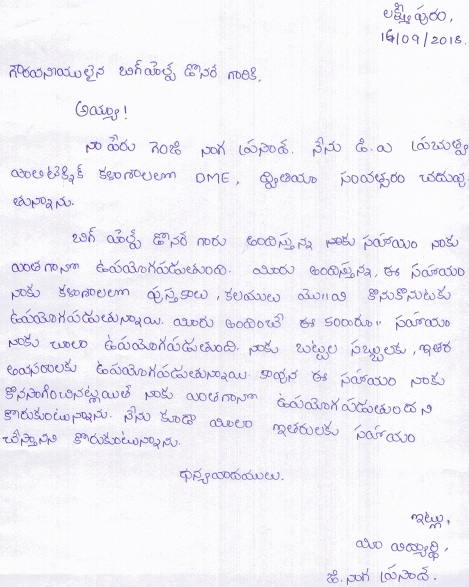 లక్ష్మీపురం,
16/09/2018.
గౌరవనీయులైన బిగ్ హెల్ప్ డొనర్ గారికి,
అయ్యా!
నా పేరు గెంజి నంగ ప్రసాద్. నేను డి.ఎ ప్రభుత్వ
పాలిటెక్నిక్ కళాశాలలో DME, ద్వితీయ సంవత్సరం చదువు
తున్నాను.
బిగ్ హెల్ప్ డొనర్ గారు అందిస్తున్న నాకు సహాయం నాకు
ఎంతగానో ఉపయోగపడుతుంది. మీరు అందిస్తున్న, ఈ సహాయం
నాకు కళాశాలలో పుస్తకాలు, కలములు మొ॥వి కొనుకొనుటకు
ఉపయోగపడుతున్నాయి. మీరు అందించే ఈ సహాయం
నాకు చాలా ఉపయోగపడుతుంది. నాకు బట్టల సబ్బులకు, ఇతర
అవసరాలకు ఉపయోగపడుతున్నాయి. కావున ఈ సహాయం నాకు
కొనసాగించినట్లయితే నాకు ఎంతగానో ఉపయోగపడుతుందని
కోరుకుంటున్నాను. నేను కూడా మీలా ఇతరులకు సహాయం
చేస్తానని కోరుకుంటున్నాను.
ధన్యవాదములు.
ఇట్లు,
మీ విద్యార్థి,
జి. నంగ ప్రసాద్.